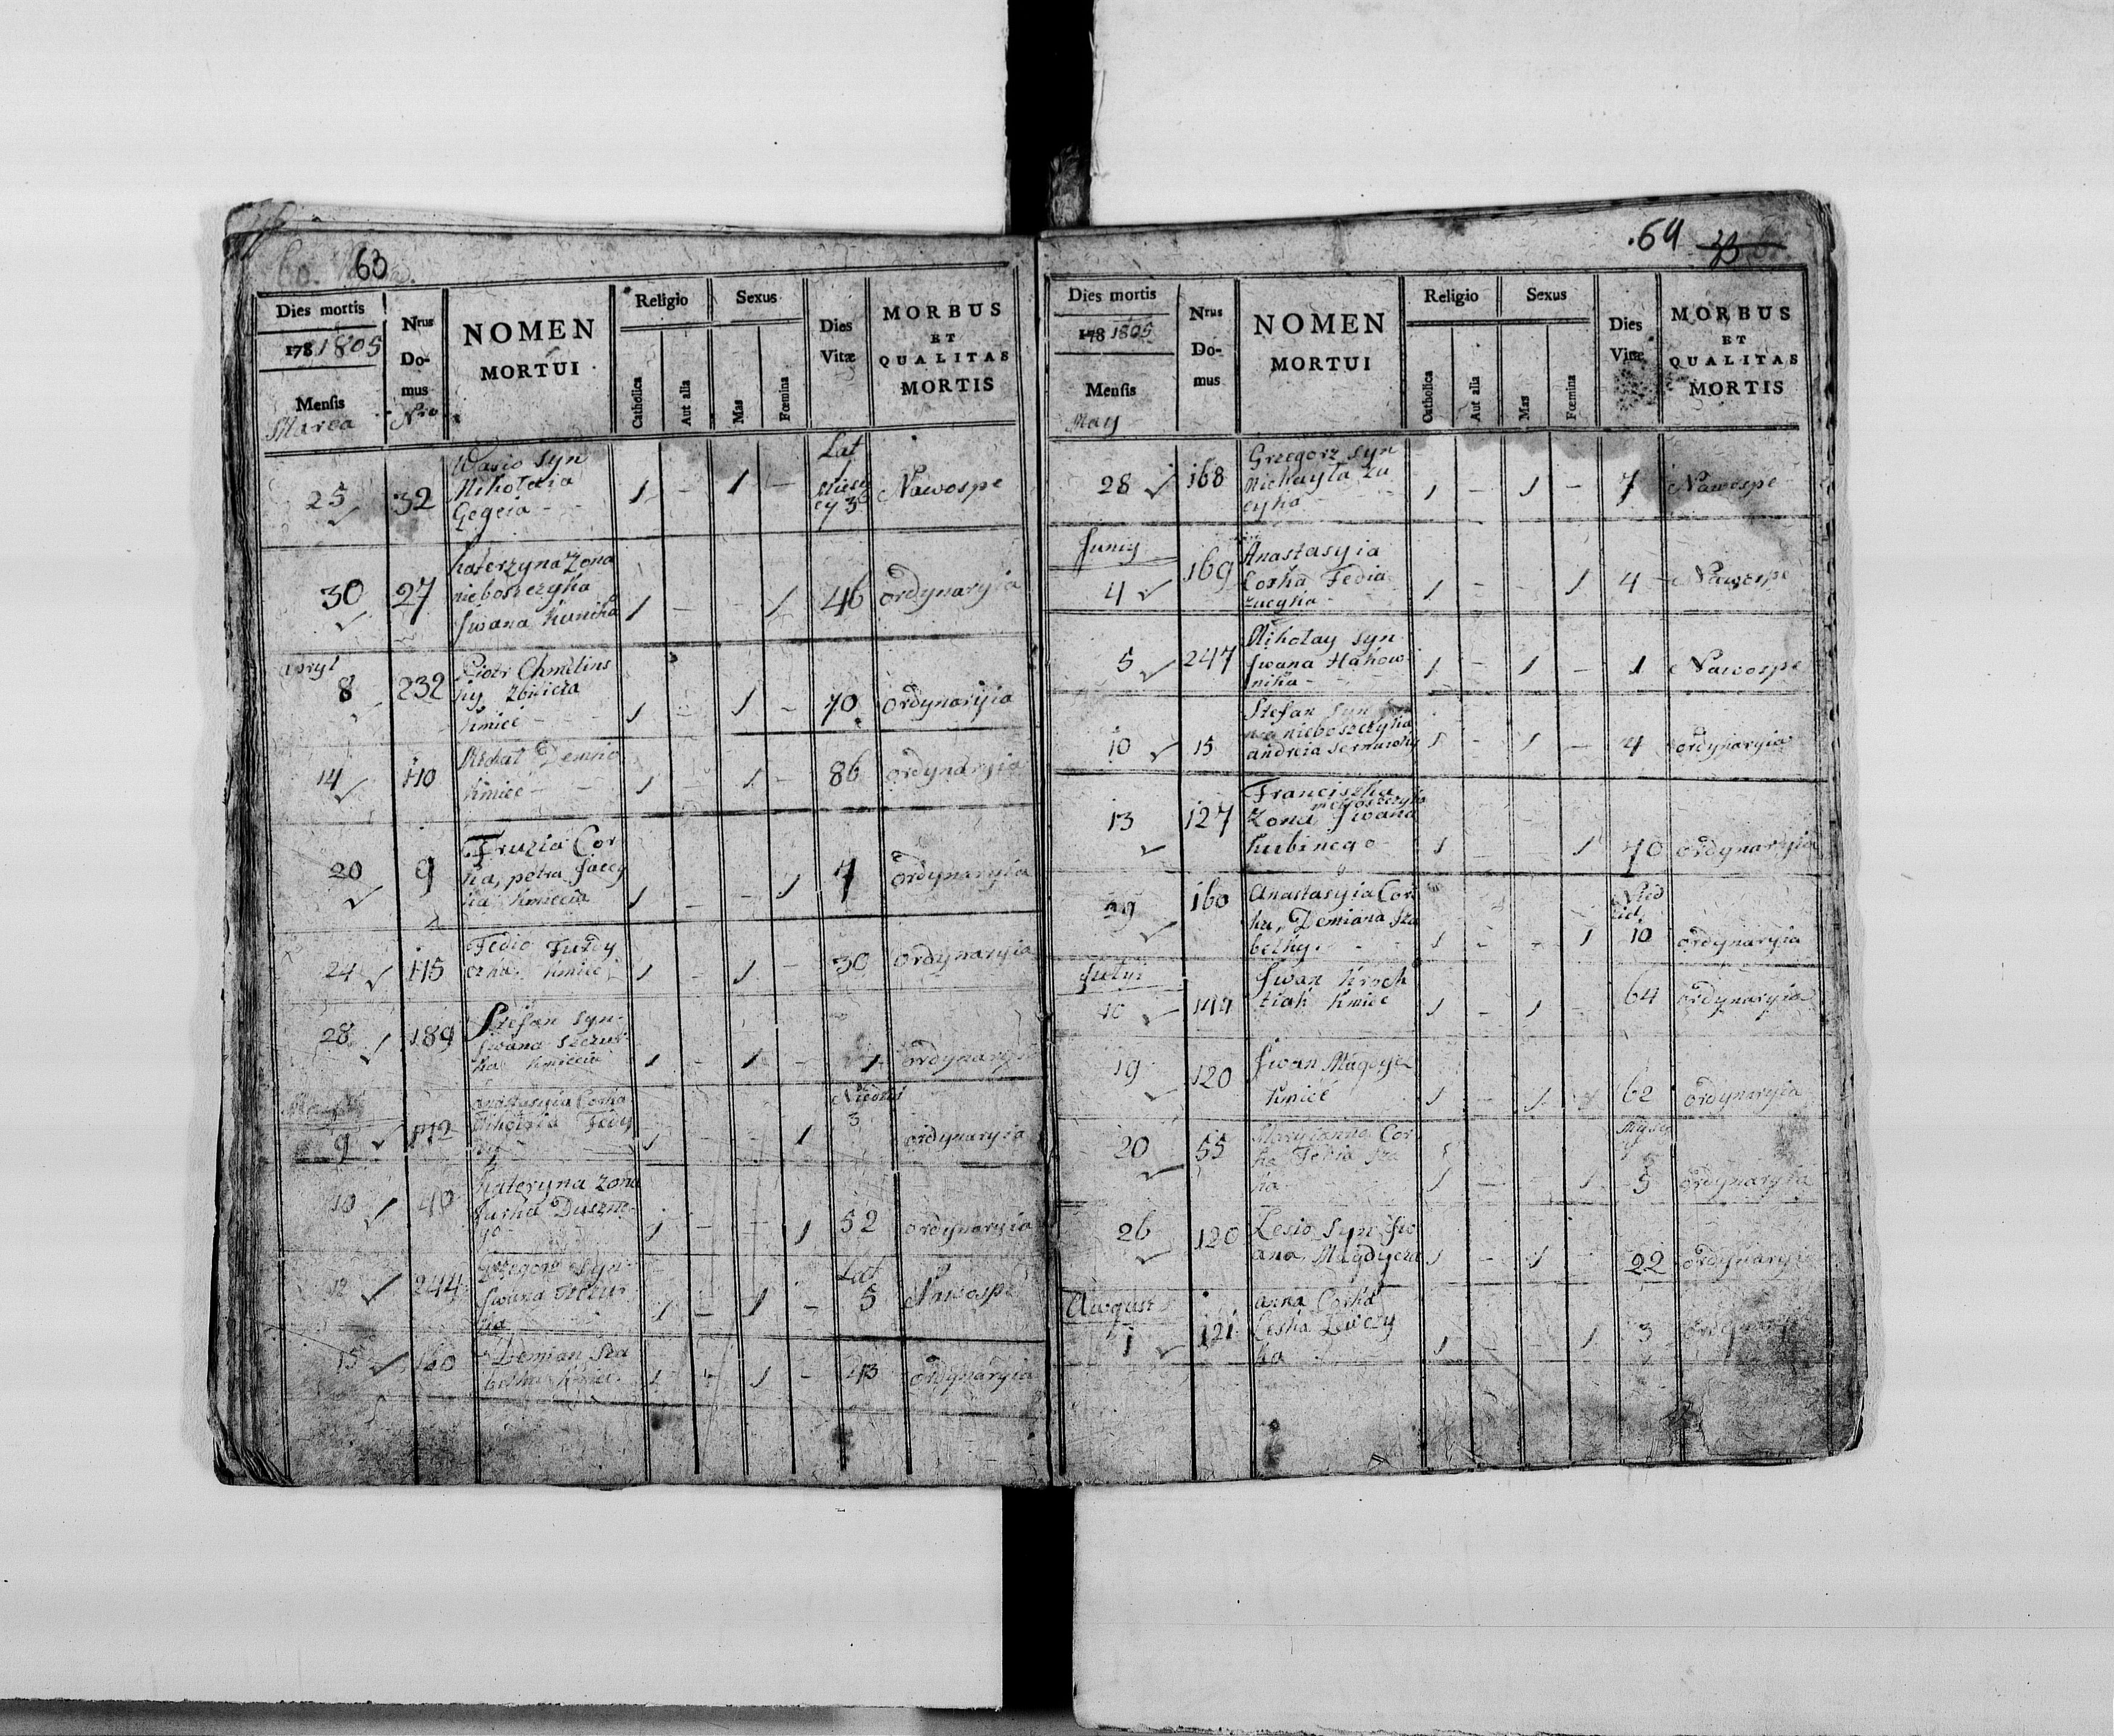 63
Dies mortis
1781805
Mensis
Marca
Nrus
Do-
mus
Nro
NOMEN
MORTUI
Religio
Catholica
Aut alia
Sexus
Mas
Fœmina
Dies
Vitæ
MORBUS
ET
QUALITAS
MORTIS
25 32 Wasio Syn
Mikołaia
Gegeia 1 - 1 - Lat
Miesię
cy 3 Nawospe
30 27 Katerzyna Zona
nieboszczyka
Iwana Kunika 1 - - 1 46 ordynaryia
Apryl
8 232 Piotr Chmelins
ky
Kmieć 1 - 1 - 70 ordynaryia
14 110 Michał
Kmieć 1 - 1 - 86 ordynaryia
20 9 Fruzia Cor
ka, petra Jacey
ka Kmiecia 1 - - 1 7 ordynaryia
24 115 Fedio
Kmieć 1 - 1 - 30 ordynaryia
28 189 Stefan Syn
Iwana
Kmiecia 1 - 1 - 1 ordynaryia
9 Anastasyia Corka
1 - - 1 3 ordynaryia
10 40 Kateryna Zona
Jurka
1 - - 1 52 ordynaryia
12 244 Grzegorz Syn
Iwana
1 - 1 - Lat
5 Nawospe
15 160 Demian Sza
1 - 1 - 43 ordynaryia
.64
Dies mortis
178 1805
Mensis
May
Nrus
Do-
mus
NOMEN
MORTUI
Religio
Catholica
Aut alia
Sexus
Mas
Fœmina
Dies
Vitæ
MORBUS
ET
QUALITAS
MORTIS
28 168 Grzegorz Syn
Michayła Zu
cyka 1 - 1 - 7 Nawospe
Juniy
4 169 Anastasyia
Corka Fedia
Zucyka 1 - - 1 4 Nawospe
5 247 Mikolay Syn
Iwana Hakow
nika 1 - 1 - 1 Nawospe
10 15 Stefan Syn
nieboszczyka
andreia 1 - 1 - 4 ordynaryia
13 127 Franciszka
nieboszczyka
Zona Iwana
Kubinego 1 - - 1 70 ordynaryia
29 160 Anastasyia Cor
ka, Demiana Sza
belky. 1 - - 1 Nied
ziel,
10 ordynaryia
Julyi
10 Iwan
Kmieć 1 - 1 - 64 ordynaryia
19 120 Iwan
Kmieć 1 - 1 62 ordynaryia
20 55 Maryianna Cor
ka Fedia Sza
ka 1 - - 1 5 ordynaryia
26 120 Lesio Syn Iw
ana Magdycza 1 - 1 22 ordynaryia
August
1 121 Anna Corka
Leska
ka 1 - - 1 3 ordynaryia